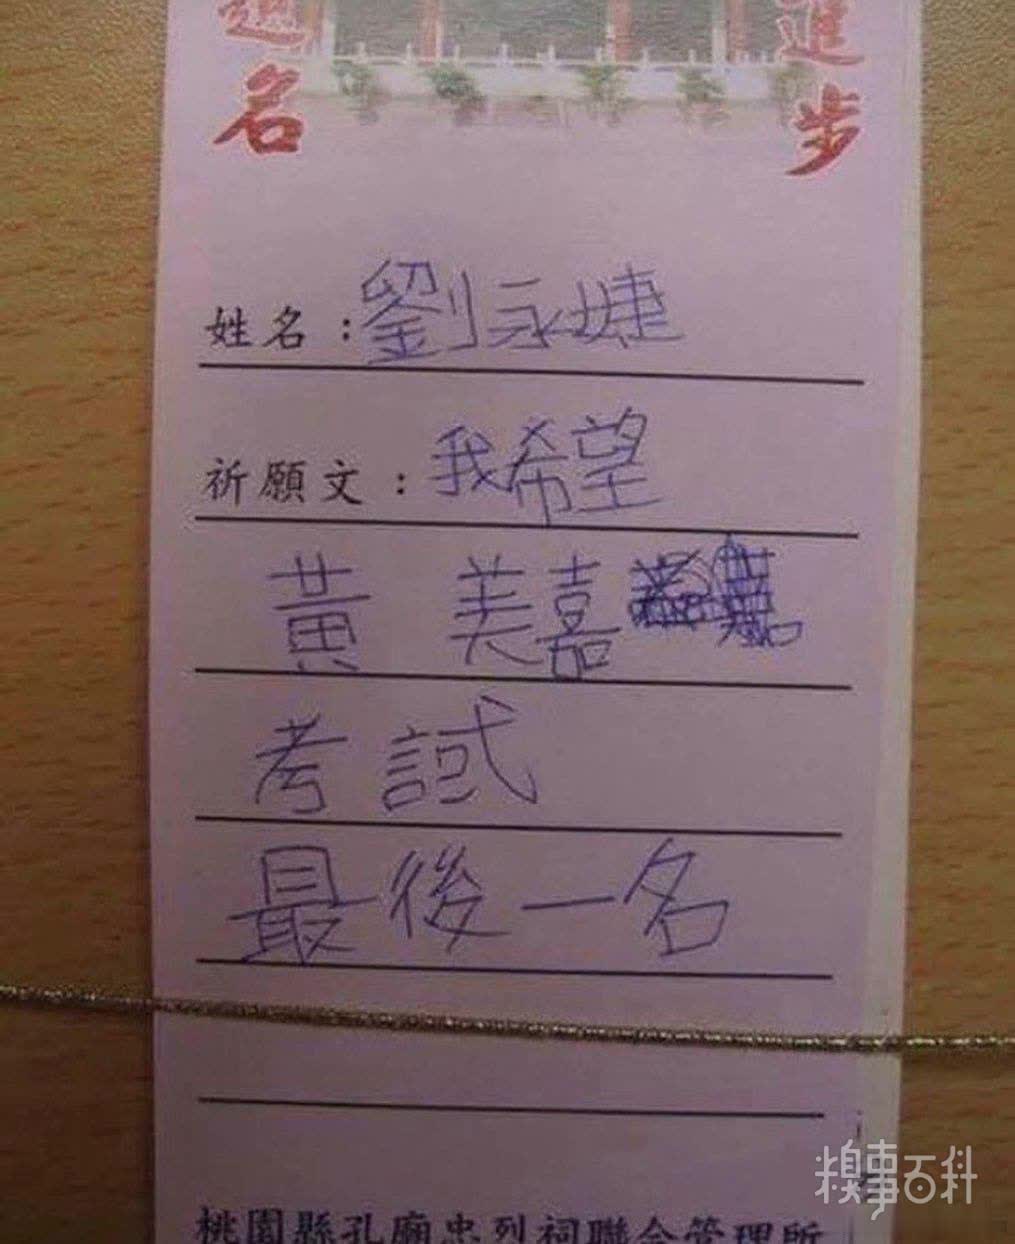 名
進步
姓名：劉永婕
祈願文：我希望
黃 美嘉
考試
最後一名
桃園縣孔廟忠烈祠聯合管理所
糗事百科